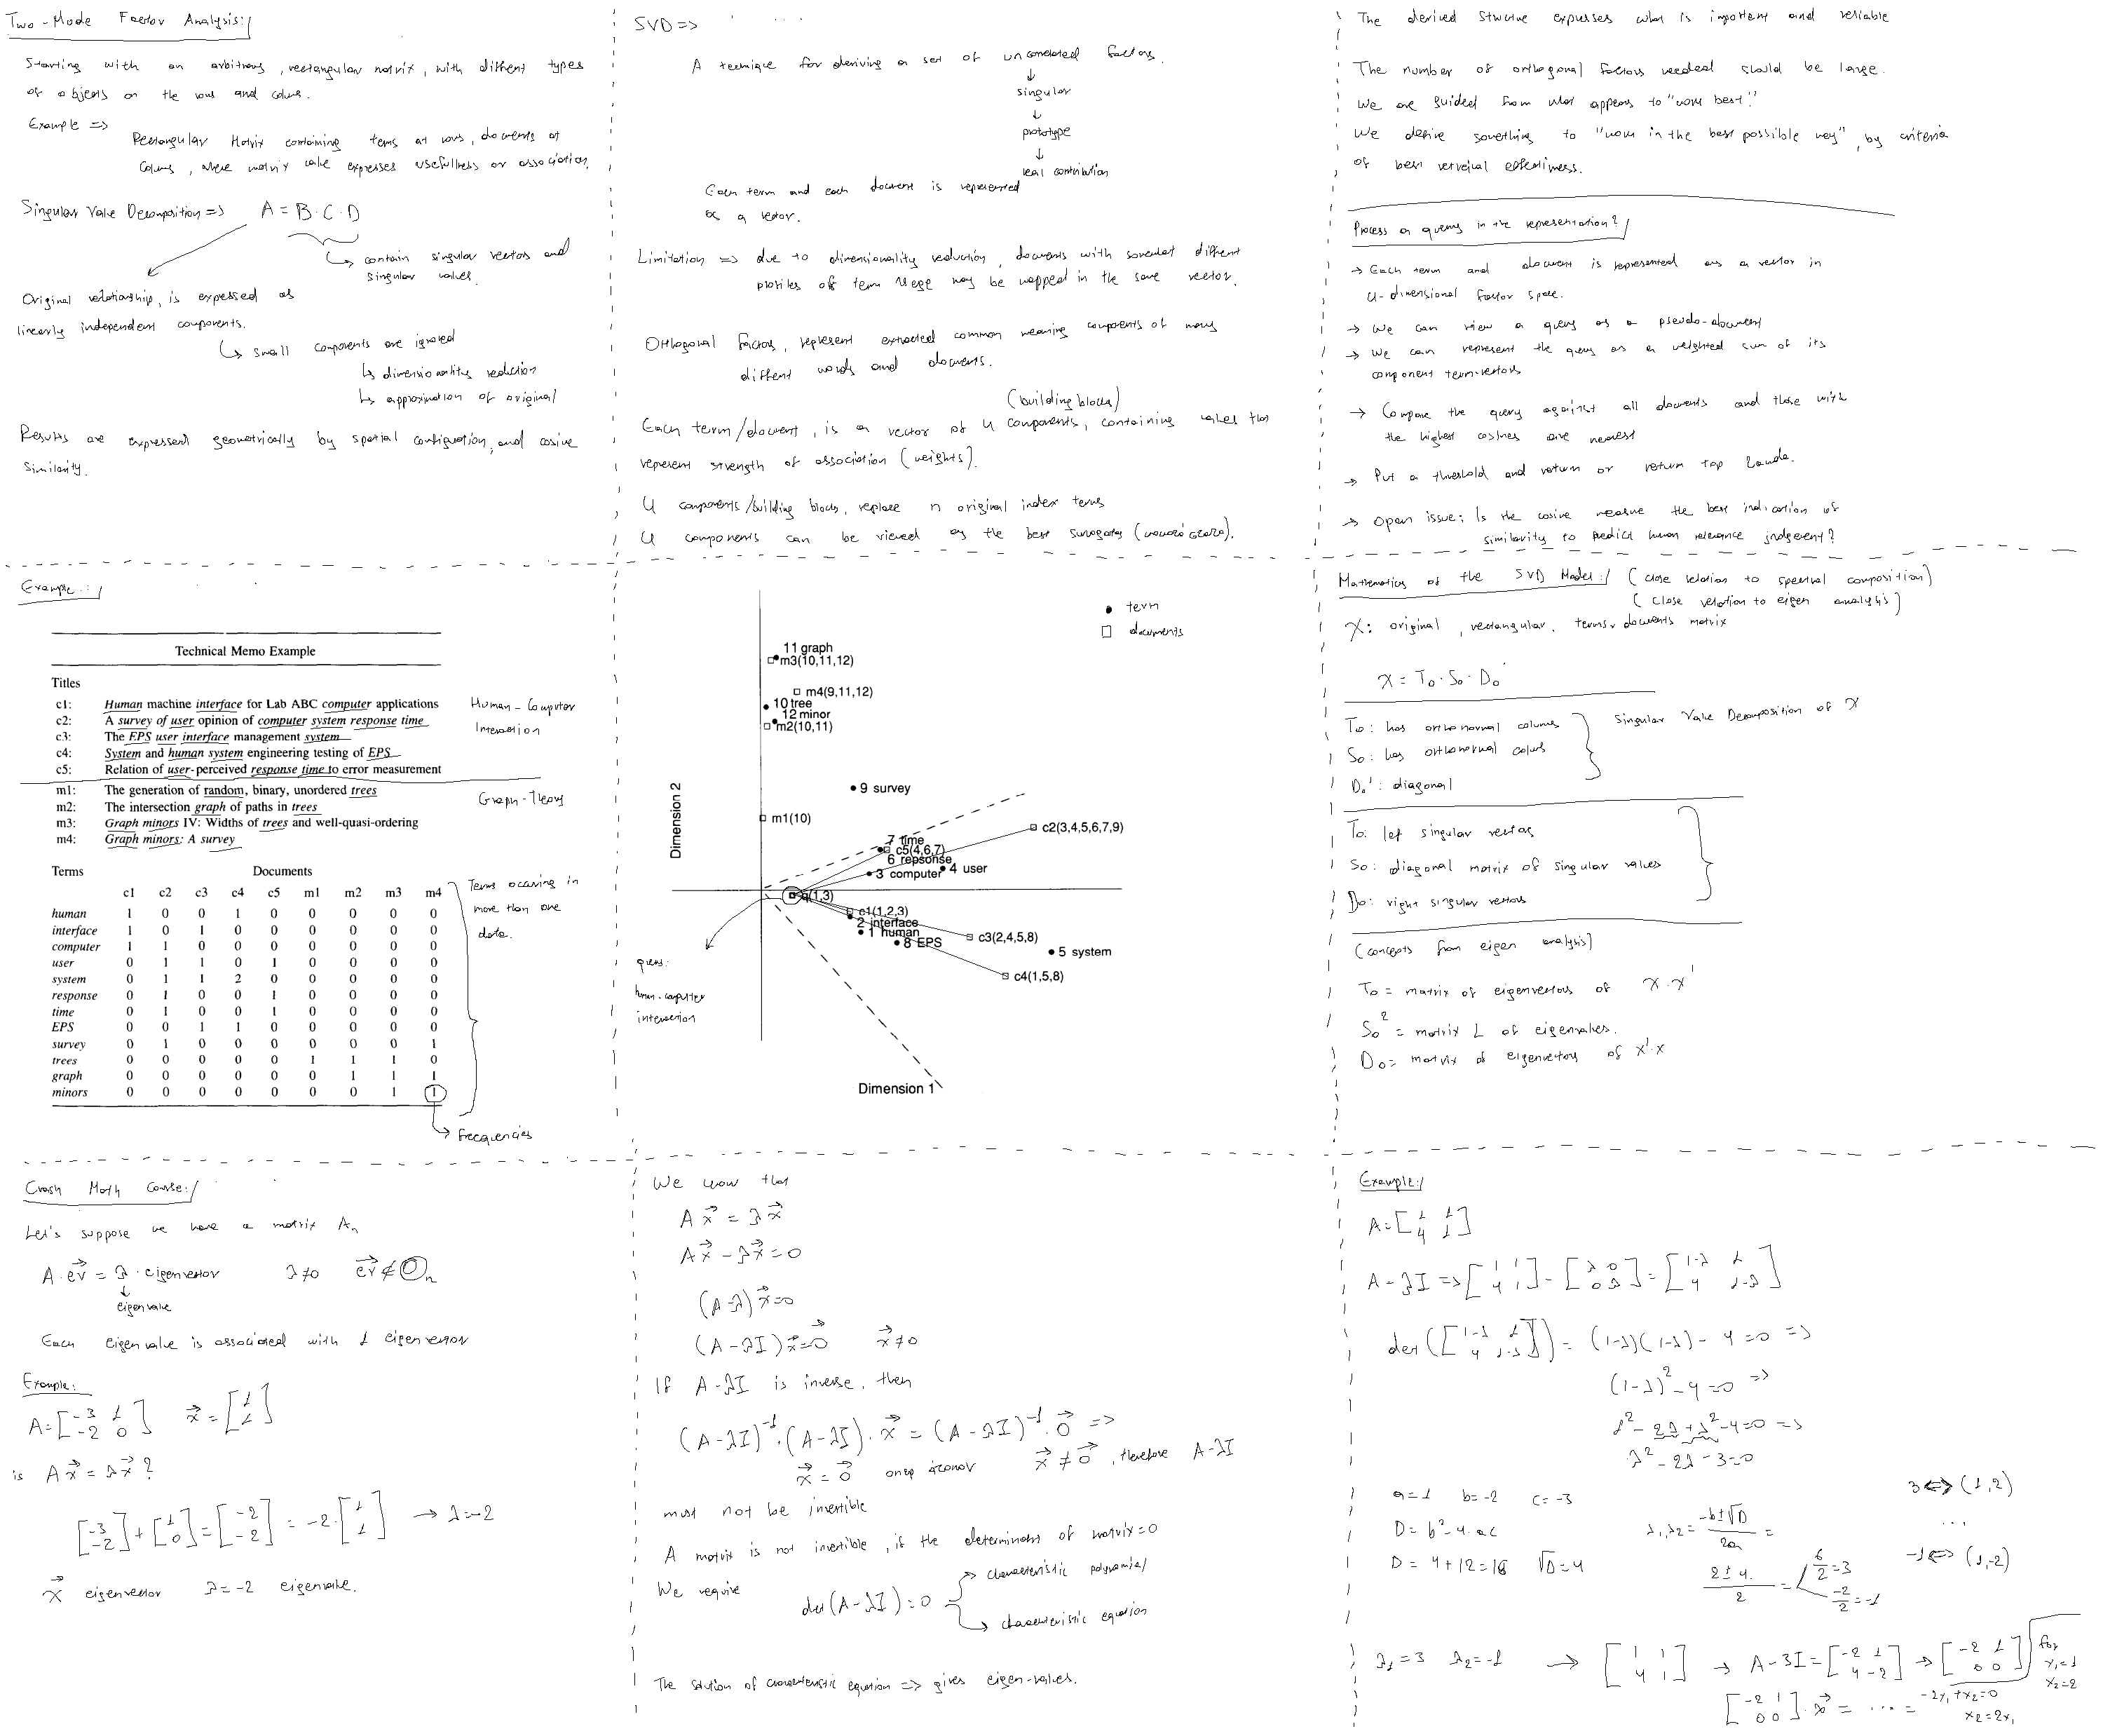 Two-Mode Factor Analysis:/
Starting with an arbitrary, rectangular matrix, with different types
of objects on the rows and colums.
Example =>
Rectangular Matrix containing terms at rows, documents at
Colums, where matrix value expresses usefullness or association.
Singular Value Decomposition => A = B·C·D
contain singular vectors and
singular values.
Original relationship, is expressed as
linearly independent components.
small components are ignored
dimensionality reduction
approximation of original
Results are expressed geometrically by spatial configuration, and cosine
similarity.
SVD =>
A technique for deriving a set of uncorrelated factors.
singular
prototype
real contribution
Each term and each document is represented
as a vector.
Limitation => due to dimensionality reduction, documents with somewhat different
profiles of term usege may be mapped in the same vector.
Orthogonal factors, represent extracted common meaning components of many
different words and documents.
(building blocks)
Each term/document, is a vector of u components, containing values that
represent strength of association (weights).
U components/building blocks, replace n original index terms
U components can be viewed as the best surogates
The derived structure expresses what is important and reliable
The number of orthogonal factors needed should be large.
We are guided from what appears to "work best".
We define something to "work in the best possible way", by criteria
of best retreival effectiveness.
Process a query in the representation?/
→ Each term and document is represented as a vector in
u-dimensional factor space.
→ We can view a query as a pseudo-document
→ We can represent the query as a weighted sum of its
component term-vectors
→ Compare the query against all documents and those with
the highest cosines are nearest
→ Put a threshold and return or return top
→ Open issue: Is the cosine measure the best indication of
similarity to predict human relevance judgement?
Example:/
Technical Memo Example
Titles
c1: Human machine interface for Lab ABC computer applications
c2: A survey of user opinion of computer system response time
c3: The EPS user interface management system
c4: System and human system engineering testing of EPS
c5: Relation of user-perceived response time to error measurement
Human-Computer
Interaction
m1: The generation of random, binary, unordered trees
m2: The intersection graph of paths in trees
m3: Graph minors IV: Widths of trees and well-quasi-ordering
m4: Graph minors: A survey
Graph-Theory
Terms Documents
c1 c2 c3 c4 c5 m1 m2 m3 m4
human 1 0 0 1 0 0 0 0 0
interface 1 0 1 0 0 0 0 0 0
computer 1 1 0 0 0 0 0 0 0
user 0 1 1 0 1 0 0 0 0
system 0 1 1 2 0 0 0 0 0
response 0 1 0 0 1 0 0 0 0
time 0 1 0 0 1 0 0 0 0
EPS 0 0 1 1 0 0 0 0 0
survey 0 1 0 0 0 0 0 0 1
trees 0 0 0 0 0 1 1 1 0
graph 0 0 0 0 0 0 1 1 1
minors 0 0 0 0 0 0 0 1 1
Terms occuring in
more than one
data.
frecquencies
term
documents
11 graph
m3(10,11,12)
m4(9,11,12)
10 tree
12 minor
m2(10,11)
9 survey
Dimension 2
m1(10)
c2(3,4,5,6,7,9)
7 time
c5(4,6,7)
6 repsonse
4 user
3 computer
q(1,3)
c1(1,2,3)
2 interface
1 human
c3(2,4,5,8)
8 EPS
5 system
c4(1,5,8)
Dimension 1
query:
human-computer
interaction
Mathematics of the SVD Model:/ (close relation to spectral composition)
(close relation to eigen analysis)
X: original, rectangular, terms x documents matrix
X = To·So·Do'
To: has orthonormal columns
So: has orthonormal colums
Do': diagonal
Singular Value Decomposition of X
To: left singular vectors
So: diagonal matrix of singular values
Do: right singular vectors
(concepts from eigen analysis)
To = matrix of eigenvectors of X·X'
So² = matrix L of eigenvalues.
Do = matrix of eigenvectors of X'·X
Crash Math Course:/
Let's suppose we have a matrix An
A·ev = λ·eigenvector λ≠0 ev∉On
eigenvalue
Each eigenvalue is associated with 1 eigenvector
Example:
A=[-3 1; -2 0] x=[1; 1]
is Ax = λx?
[-3; -2]+[1; 0]=[-2; -2]=-2·[1; 1] → λ=-2
x eigenvector λ=-2 eigenvalue.
We know that
Ax = λx
Ax - λx = 0
(A-λ)x=0
(A-λI)x=0 x≠0
If A-λI is inverse, then
(A-λI)⁻¹·(A-λI)·x = (A-λI)⁻¹·0 =>
x=0 οπερ άτοπον x≠0, therefore A-λI
must not be invertible
A matrix is not invertible, if the determinant of matrix=0
We require det(A-λI)=0
characteristic polynomial
characteristic equation
The solution of characteristic equation => gives eigen-values.
Example:/
A=[1 1; 4 1]
A-λI => [1 1; 4 1]-[λ 0; 0 λ]=[1-λ 1; 4 1-λ]
det([1-λ 1; 4 1-λ]) = (1-λ)(1-λ)-4=0 =>
(1-λ)²-4=0 =>
1²-2λ+λ²-4=0 =>
λ²-2λ-3=0
a=1 b=-2 c=-3
D=b²-4·ac
D=4+12=16 √D=4
λ1,λ2= -b±√D / 2a =
2±4 / 2 = 6/2=3
-2/2=-1
3 <=> (1,2)
...
-1 <=> (1,-2)
λ1=3 λ2=-1 → [1 1; 4 1] → A-3I=[-2 1; 4 -2] → [-2 1; 0 0]
for
x1=1
x2=2
[-2 1; 0 0]·x = ... = -2x1+x2=0
x2=2x1